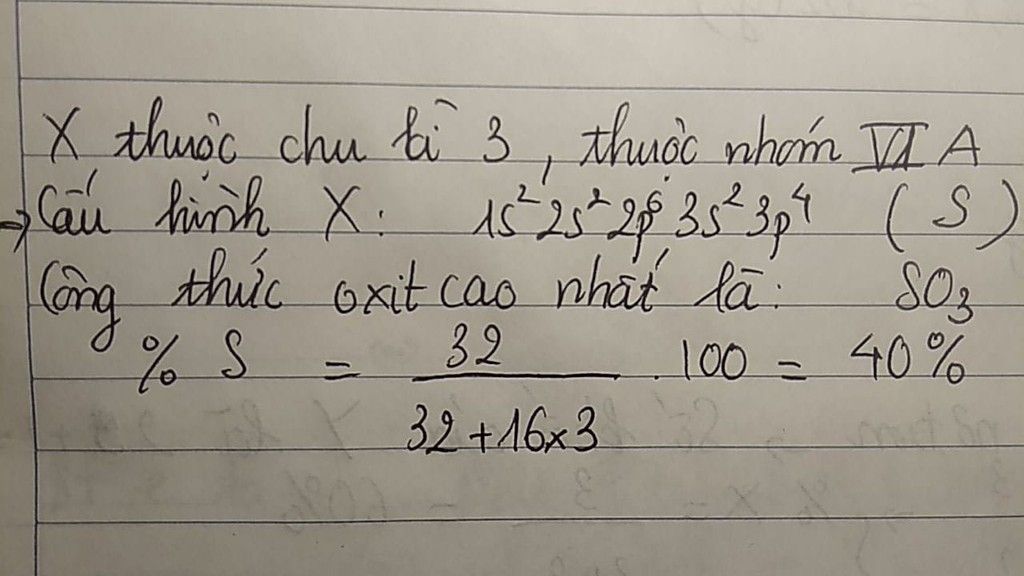 X thuộc chu kì 3, thuộc nhóm VI A
→ Cấu hình X: 1s² 2s² 2p⁶ 3s² 3p⁴ (S)
Công thức oxit cao nhất là: SO₃
% S = 32 / (32 + 16x3) . 100 = 40%